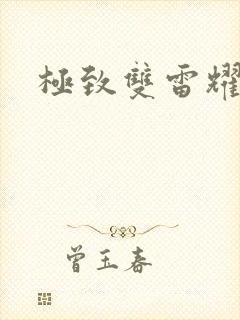 極致雙雷耀
曾玉春